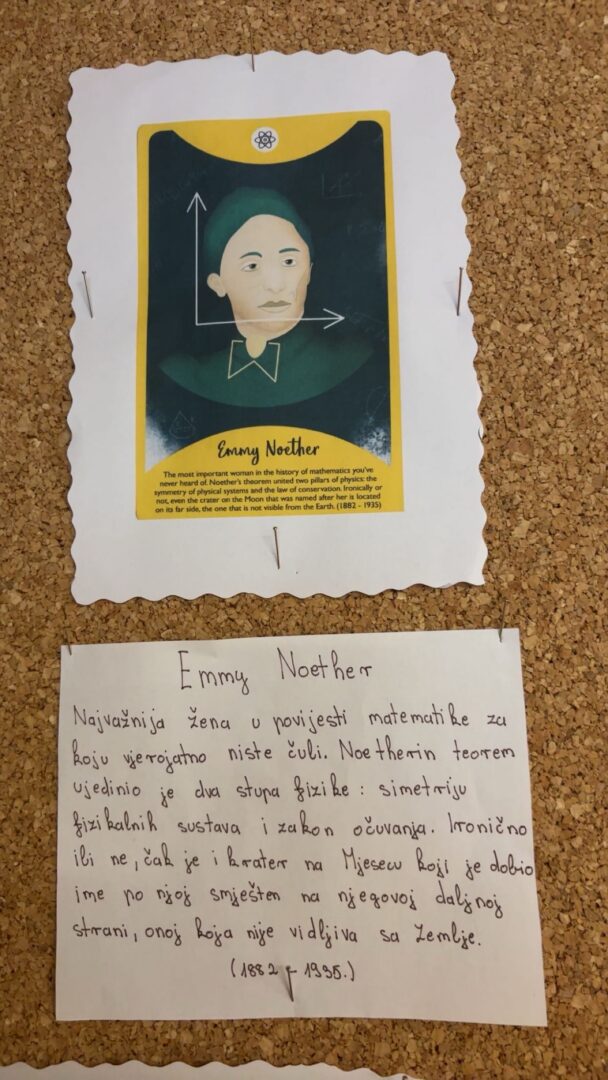 Emmy Noether
The most important woman in the history of mathematics you've
never heard of. Noether's theorem united two pillars of physics: the
symmetry of physical systems and the law of conservation. Ironically or
not, even the crater on the Moon that was named after her is located
on its far side, the one that is not visible from the Earth. (1882 - 1935)
Emmy Noether
Najvažnija žena u povijesti matematike za
koju vjerojatno niste čuli. Noetherin teorem
ujedinio je dva stupa fizike : simetriju
fizikalnih sustava i zakon očuvanja. Ironično
ili ne, čak je i krater na Mjesecu koji je dobio
ime po njoj smješten na njegovoj daljnoj
strani, onoj koja nije vidljiva sa Zemlje.
(1882 - 1935.)